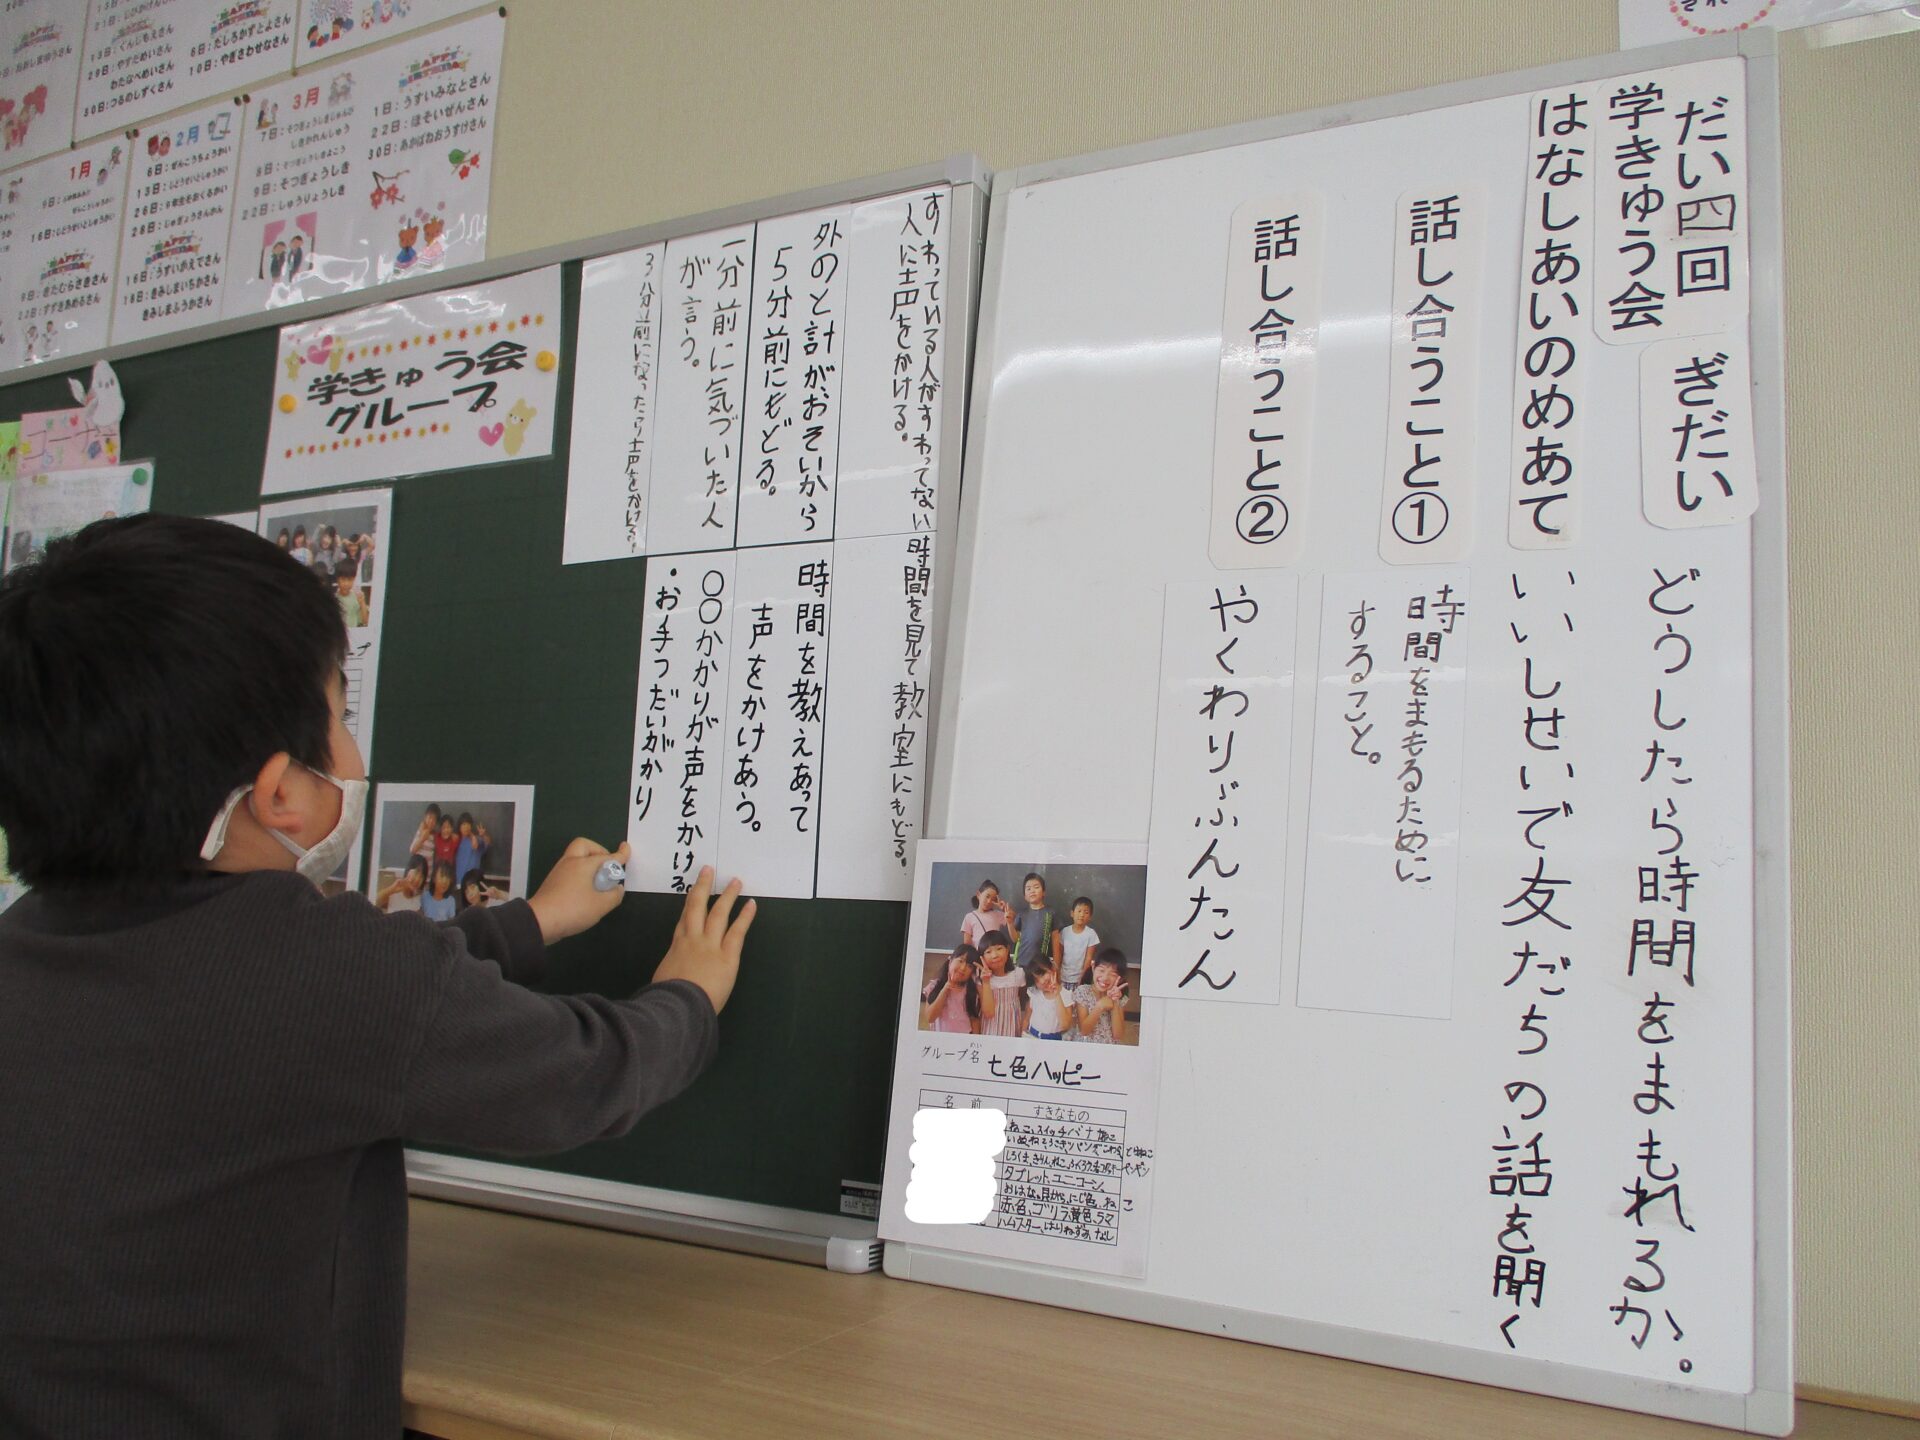 だい四回
学きゅう会
ぎだい
どうしたら時間をまもれるか。
はなしあいのめあて
いいしせいで友だちの話を聞く
話し合うこと①
時間をまもるために
すること。
話し合うこと②
やくわりぶんたん
すわっている人がすわってない
人に声をかける。
外のと計がおそいから
5分前にもどる。
一分前に気づいた人
が言う。
3分前になったら声をかける。
時間を見て教室にもどる。
時間を教えあって
声をかけあう。
〇〇かかりが声をかける。
・お手つだいがかり
学きゅう会
グループ
グループ名
七色ハッピー
名前
すきなもの
タブレット、ユニコーン、
1月
2月
6日:ぜんこうちょうかい
13日:じどうせいとしゅうかい
26日:6年生をおくるかい
28日:じゅぎょうさんかん
HAPPY BIRTHDAY
16日:うすいかえでさん
18日:きみしまいちかさん
きみしまふうかさん
3月
7日:そつぎょうしきじゅんび
しきかれんしゅう
8日:そつぎょうしきよこう
9日:そつぎょうしき
22日:しゅうりょうしき
HAPPY BIRTHDAY
1日:うすいみなとさん
22日:ほそいぜんさん
30日:あかばねおうすけさん
9日:きたむらさきさん
22日:すずきあめるさん
13日:ぐんじもえさん
29日:やすだめいさん
わたなべめいさん
30日:つるのしずくさん
6日:だしろかずとよさん
10日:やぎさわせなさん